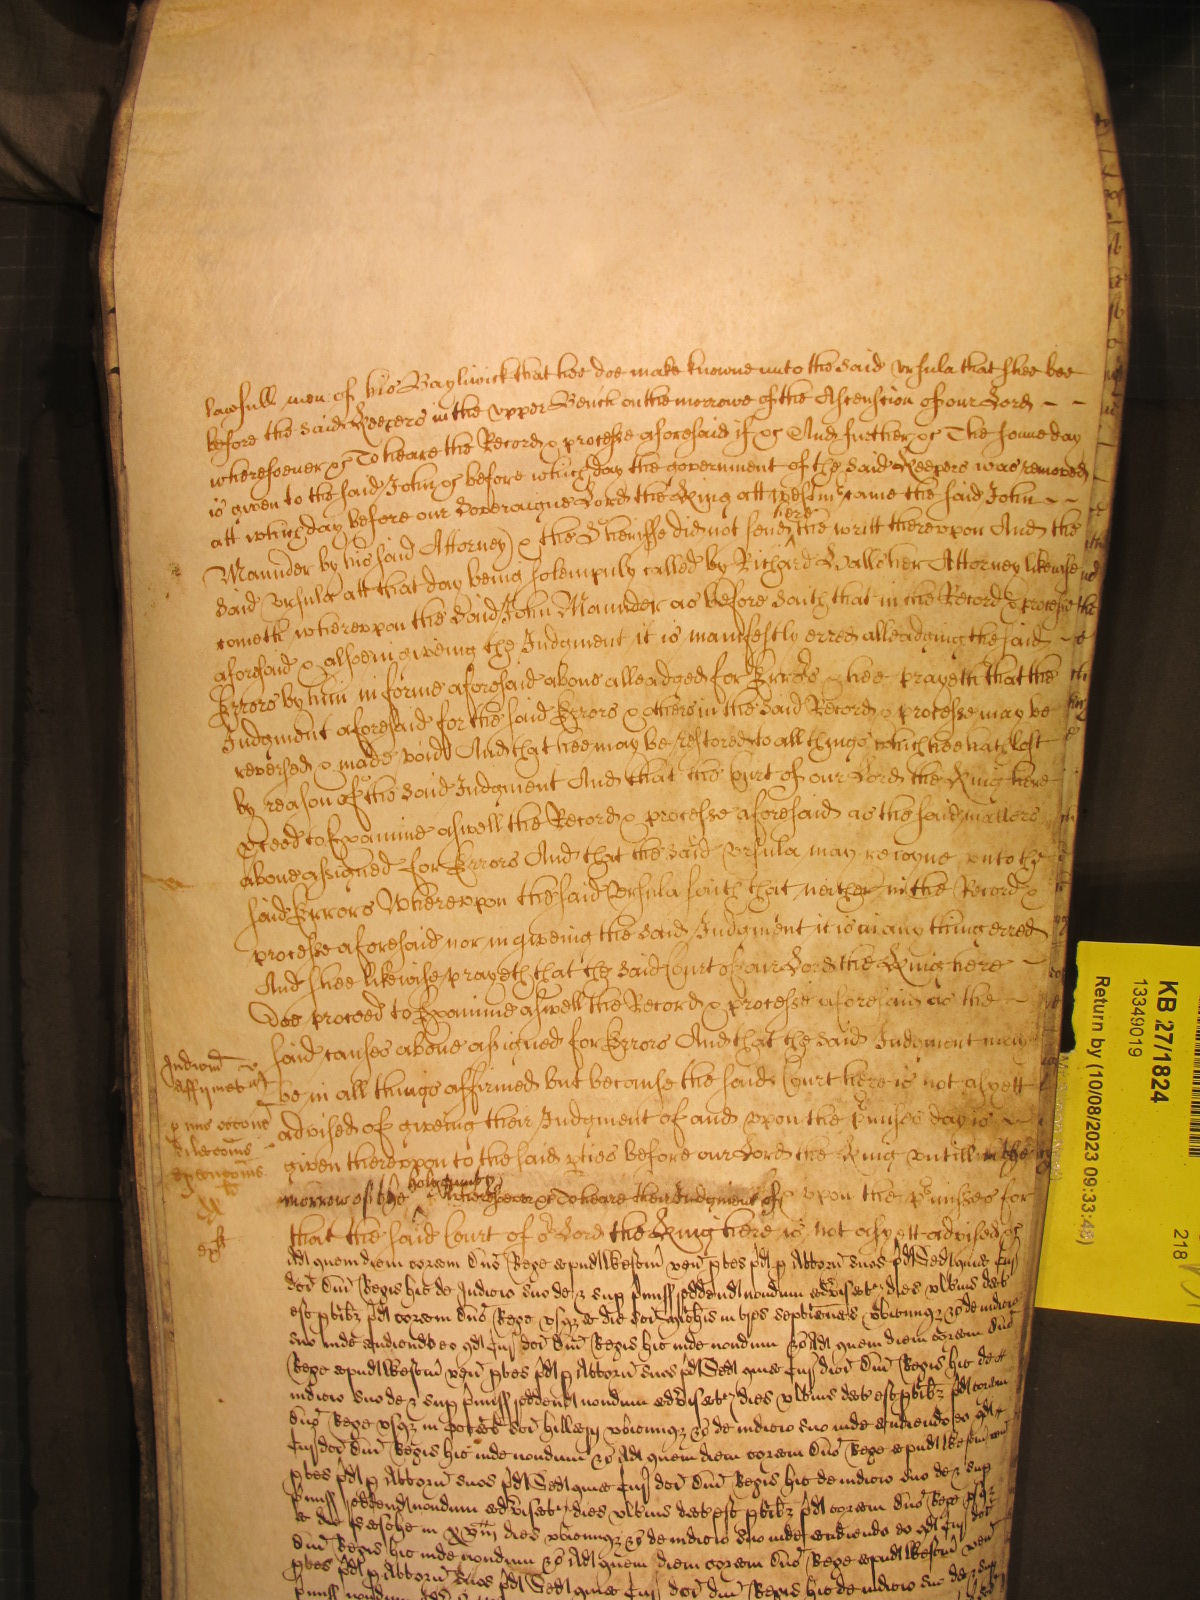 lawfull men of his Bayliwick that hee doe make knowne unto the said Ursula that shee bee
before the said Keepers in the upper Bench on the morrowe of the Ascension of our Lord - -
wheresoever &c To heare the Record & processe aforesaid if &c And further &c The same day
is given to the said John &c before which day the government of the said Keepers was removed
att which day before our Soveraigne Lord the King att Westm came the said John - -
Maunder by his said Attorney & the Sheriffe did not send here the writt thereupon And the
said Ursula att that day being solempnly called by Richard Attorney likewise
cometh whereupon the said John Maunder as before saith that in the Record & processe
aforesaid & alsoe in giveing the Judgment it is manifestly erred alleadging the said
Errors by him in forme aforesaid above alleadged for Errors & hee prayeth that the
Judgment aforesaid for the said Errors & others in the said Record & processe may be
reversed & made void And that hee may be restored to all things which hee hath lost
by reason of the said Judgment And that the Court of our Lord the King here
pceed to Examine aswell the Record & processe aforesaid as the said matters
above assigned for Errors And that the said Ursula may rejoyne unto the
said Errors Whereupon the said Ursula saith that neither in the Record &
processe aforesaid nor in giveing the said Judgment it is in any thing erred
And shee likewise prayeth that the said Court of our Lord the King here -
Doe proceed to Examine aswell the Record & processe aforesaid as the -
said causes above assigned for Errors And that the said Judgment may
be in all things affirmed but because the said Court here is not as yett
advised of giveing their Judgment of and upon the pmisses day is -
given thereupon to the said pties before our Lord the King untill in the
morrow of the holy Trinity wheresoever &c To heare their Judgment of & upon the pmisses for
that the said Court of or Lord the King here is not as yett advised &c
Judicm
affirmetur
Ad quem diem coram Dno Rege apud Westm ven ptes pd p Attorn suos pd Sed quia Cur
dci Dni Regis hic de Judicio suo de & sup pmiss reddend nondum advisatr dies ulterius dat
est ptibz pd coram Dno Rege usqz a die sci Michis in tres septimanas ubicumqz &c de judicio
suo inde audiendo eo qd Cur dci Dni Regis hic inde nondum &c Ad quem diem coram Dno
Rege apud Westm ven ptes pd p Attorn suos pd Sed quia Cur dci Dni Regis hic de
judicio suo de & sup pmiss reddend nondum advisatr dies ulterius dat est ptibz pd coram
Dno Rege usqz in Octab sci Hillarij ubicumqz &c de judicio suo inde audiendo eo qd
Cur dci Dni Regis hic inde nondum &c Ad quem diem coram Dno Rege apud Westm ven
ptes pd p Attorn suos pd Sed quia Cur dci Dni Regis hic de judicio suo de & sup
pmiss reddend nondum advisatr dies ulterius dat est ptibz pd coram Dno Rege usqz
a die Pasche in xv dies ubicumqz &c de judicio suo inde audiendo eo qd Cur dci
Dni Regis hic inde nondum &c Ad quem diem coram Dno Rege apud Westm ven
ptes pd p Attorn suos pd Sed quia Cur dci Dni Regis hic de judicio suo de & sup
pmiss nondum
KB 27/1824
13349019
Return by (10/08/2023 09:33:48)
218